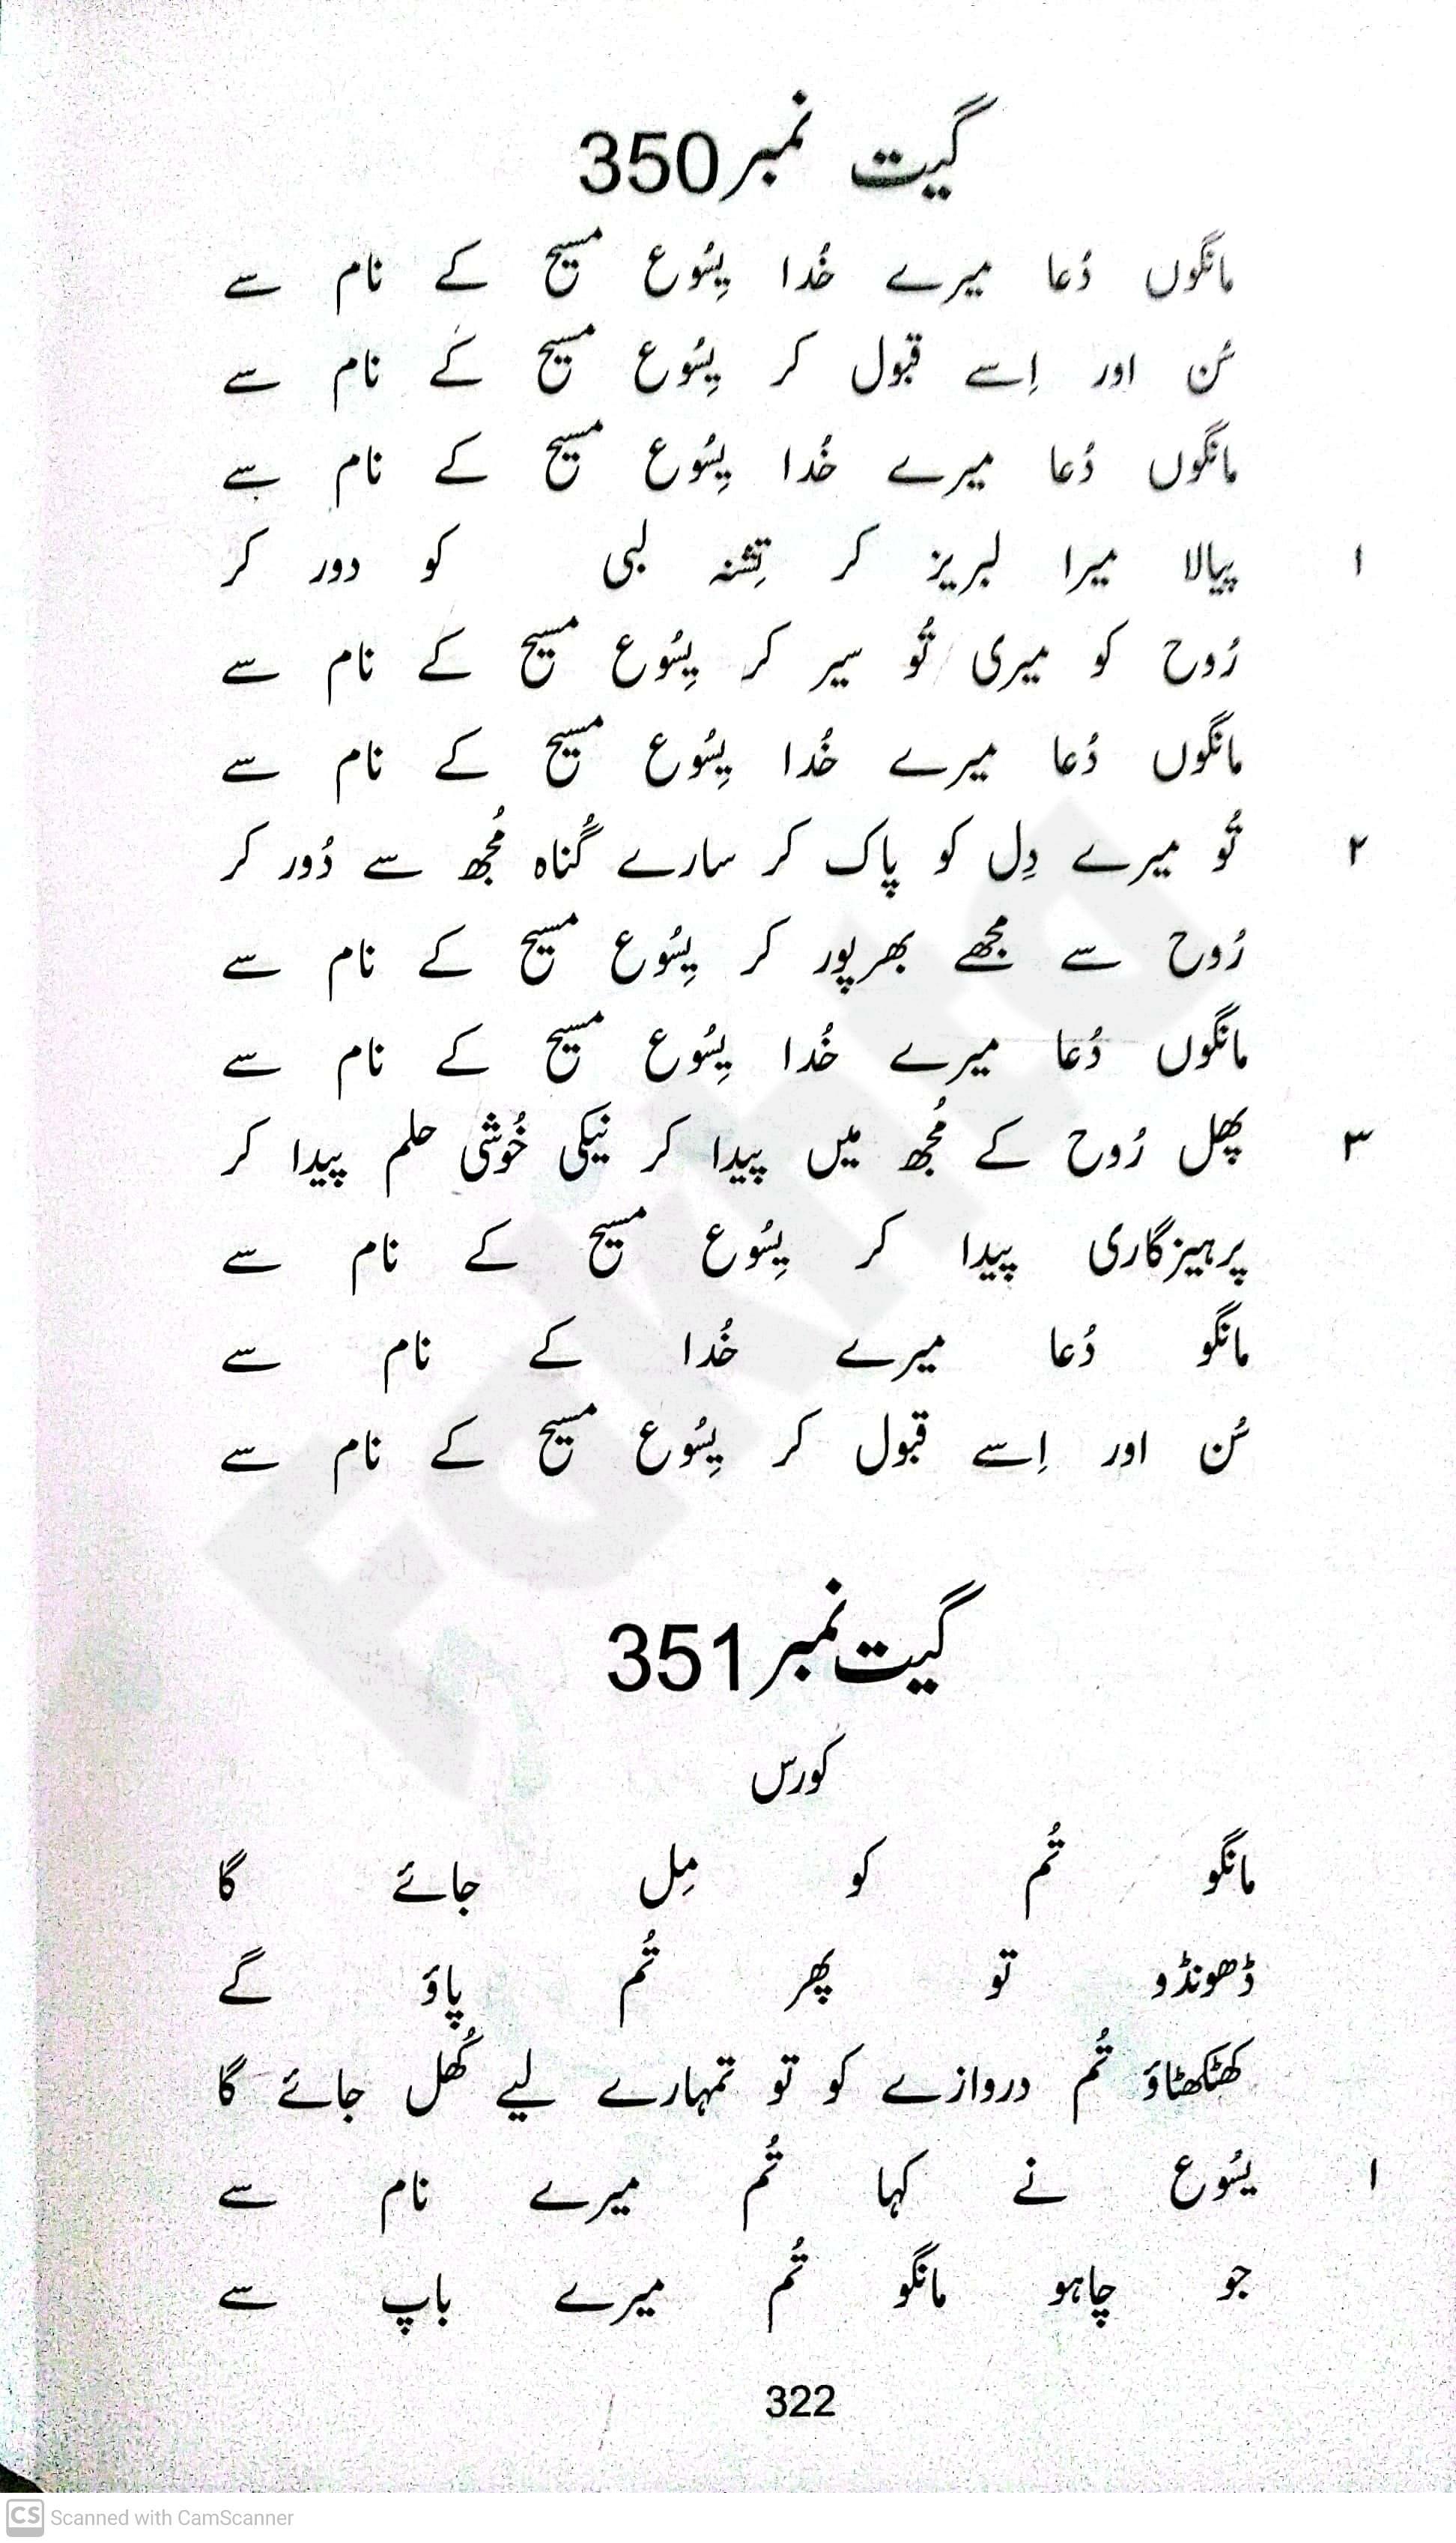 گیت نمبر 350
مانگوں دُعا میرے خُدا یِسُوع مسیح کے نام سے
سُن اور اِسے قبول کر یِسُوع مسیح کے نام سے
مانگوں دُعا میرے خُدا یِسُوع مسیح کے نام سے
۱ پیالا میرا لبریز کر تِشنہ لبی کو دور کر
رُوح کو میری تُو سیر کر یِسُوع مسیح کے نام سے
مانگوں دُعا میرے خُدا یِسُوع مسیح کے نام سے
۲ تُو میرے دِل کو پاک کر سارے گُناہ مُجھ سے دُور کر
رُوح سے مجھے بھرپور کر یِسُوع مسیح کے نام سے
مانگوں دُعا میرے خُدا یِسُوع مسیح کے نام سے
۳ پھل رُوح کے مُجھ میں پیدا کر نیکی خُوشی حلم پیدا کر
پرہیزگاری پیدا کر یِسُوع مسیح کے نام سے
مانگو دُعا میرے خُدا کے نام سے
سُن اور اِسے قبول کر یِسُوع مسیح کے نام سے
گیت نمبر 351
کورس
مانگو تُم کو مِل جائے گا
ڈھونڈو تو پھر تُم پاؤ گے
کھٹکھٹاؤ تُم دروازے کو تو تمہارے لیے کُھل جائے گا
۱ یسُوع نے کہا تُم میرے نام سے
جو چاہو مانگو تُم میرے باپ سے
322
CS Scanned with CamScanner